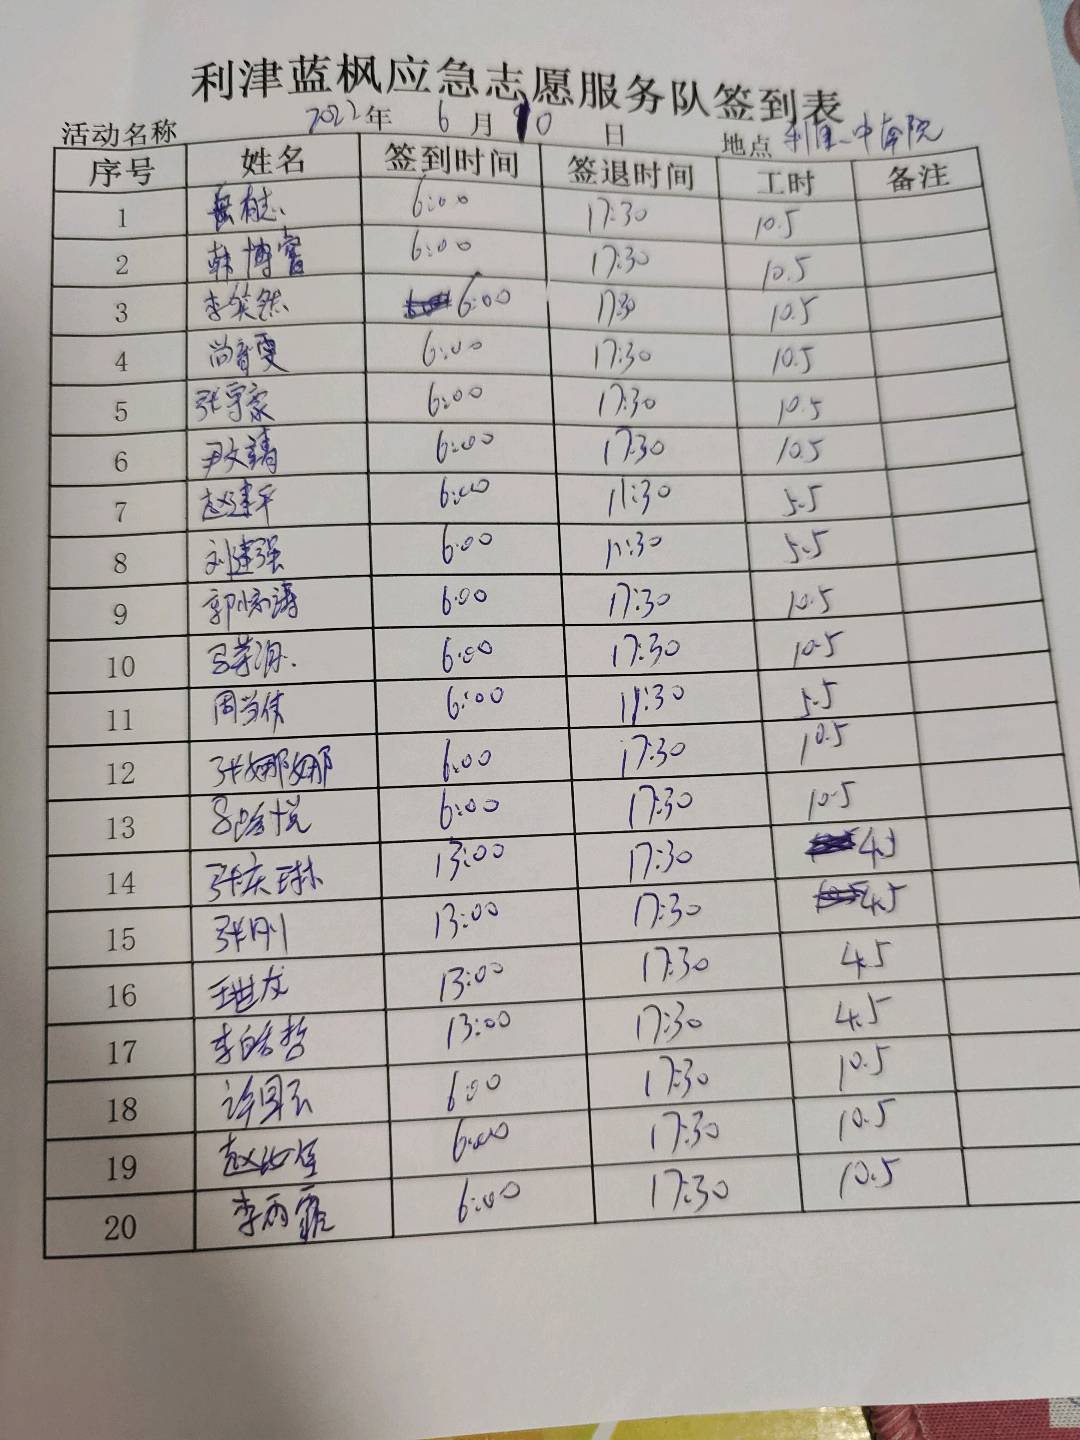 利津蓝枫应急志愿服务队签到表
活动名称 2022年 6月10日 地点 利津一中南院
序号 姓名 签到时间 签退时间 工时 备注
1 6:00 17:30 10.5
2 韩博 6:00 17:30 10.5
3 李笑然 6:00 17:30 10.5
4 尚 6:00 17:30 10.5
5 张 家 6:00 17:30 10.5
6 尹文靖 6:00 17:30 10.5
7 赵建平 6:00 11:30 5.5
8 刘建强 6:00 11:30 5.5
9 郭 涛 6:00 17:30 10.5
10 吕 6:00 17:30 10.5
11 周 6:00 11:30 5.5
12 张娜娜 6:00 17:30 10.5
13 吕 悦 6:00 17:30 10.5
14 张庆琳 13:00 17:30 4.5
15 张刚 13:00 17:30 4.5
16 王世友 13:00 17:30 4.5
17 李皓哲 13:00 17:30 4.5
18 许国玉 6:00 17:30 10.5
19 赵 6:00 17:30 10.5
20 李雨霏 6:00 17:30 10.5